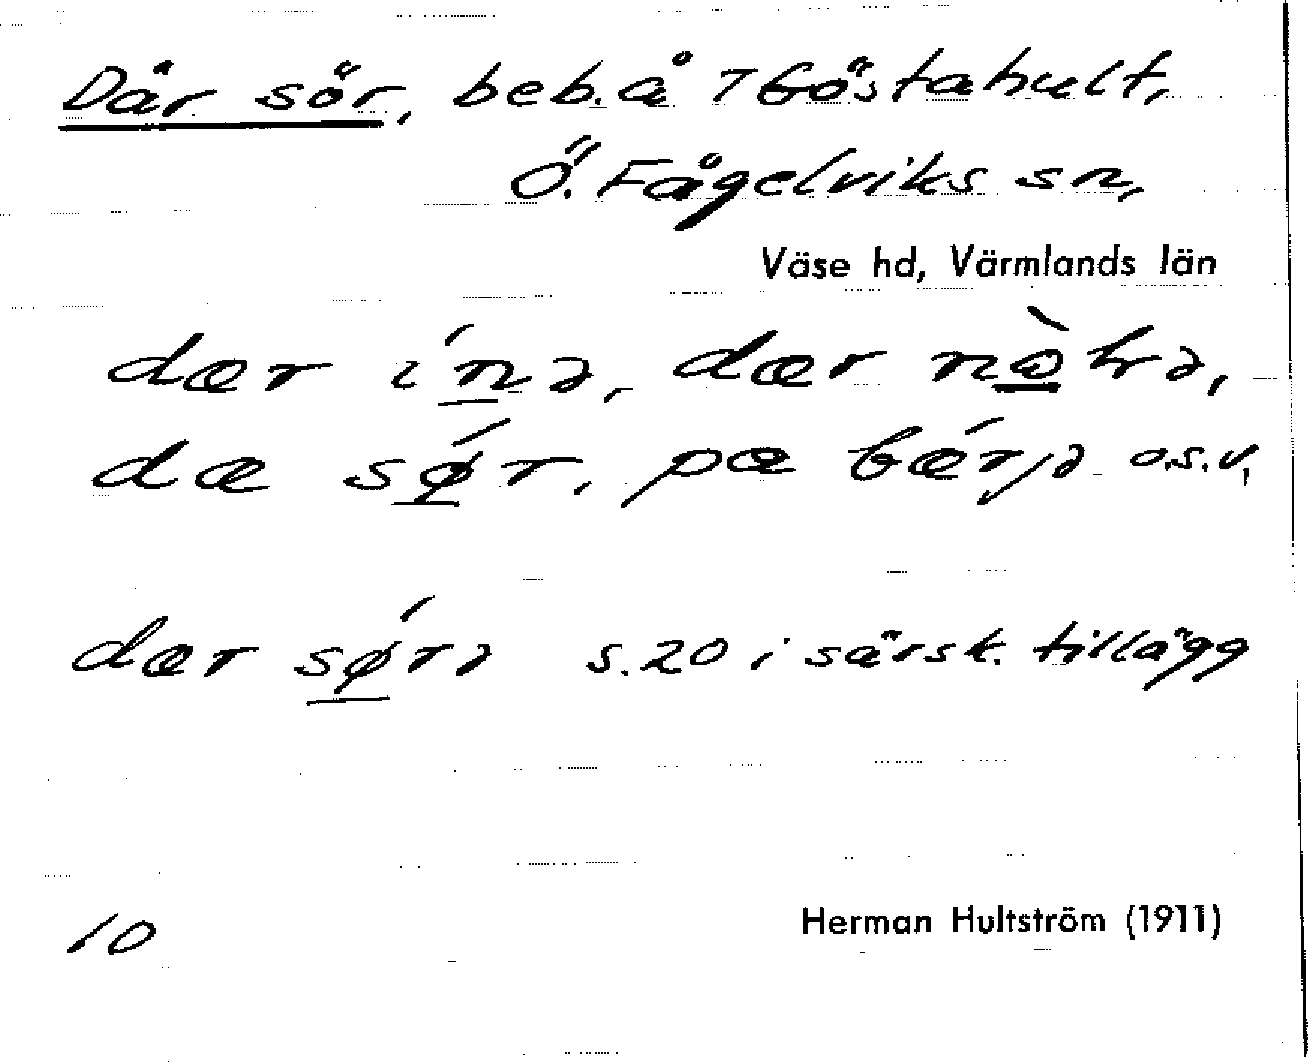 Där sör, beb. å 7 Göstahult,
Ö. Fågelviks sn,
Väse hd, Värmlands län
dær ína, dær nòla,
dæ sǿr, pæ bǽrjə o.s.v.
dær sǿrə s. 20 i särsk. tillägg
10
Herman Hultström (1911)